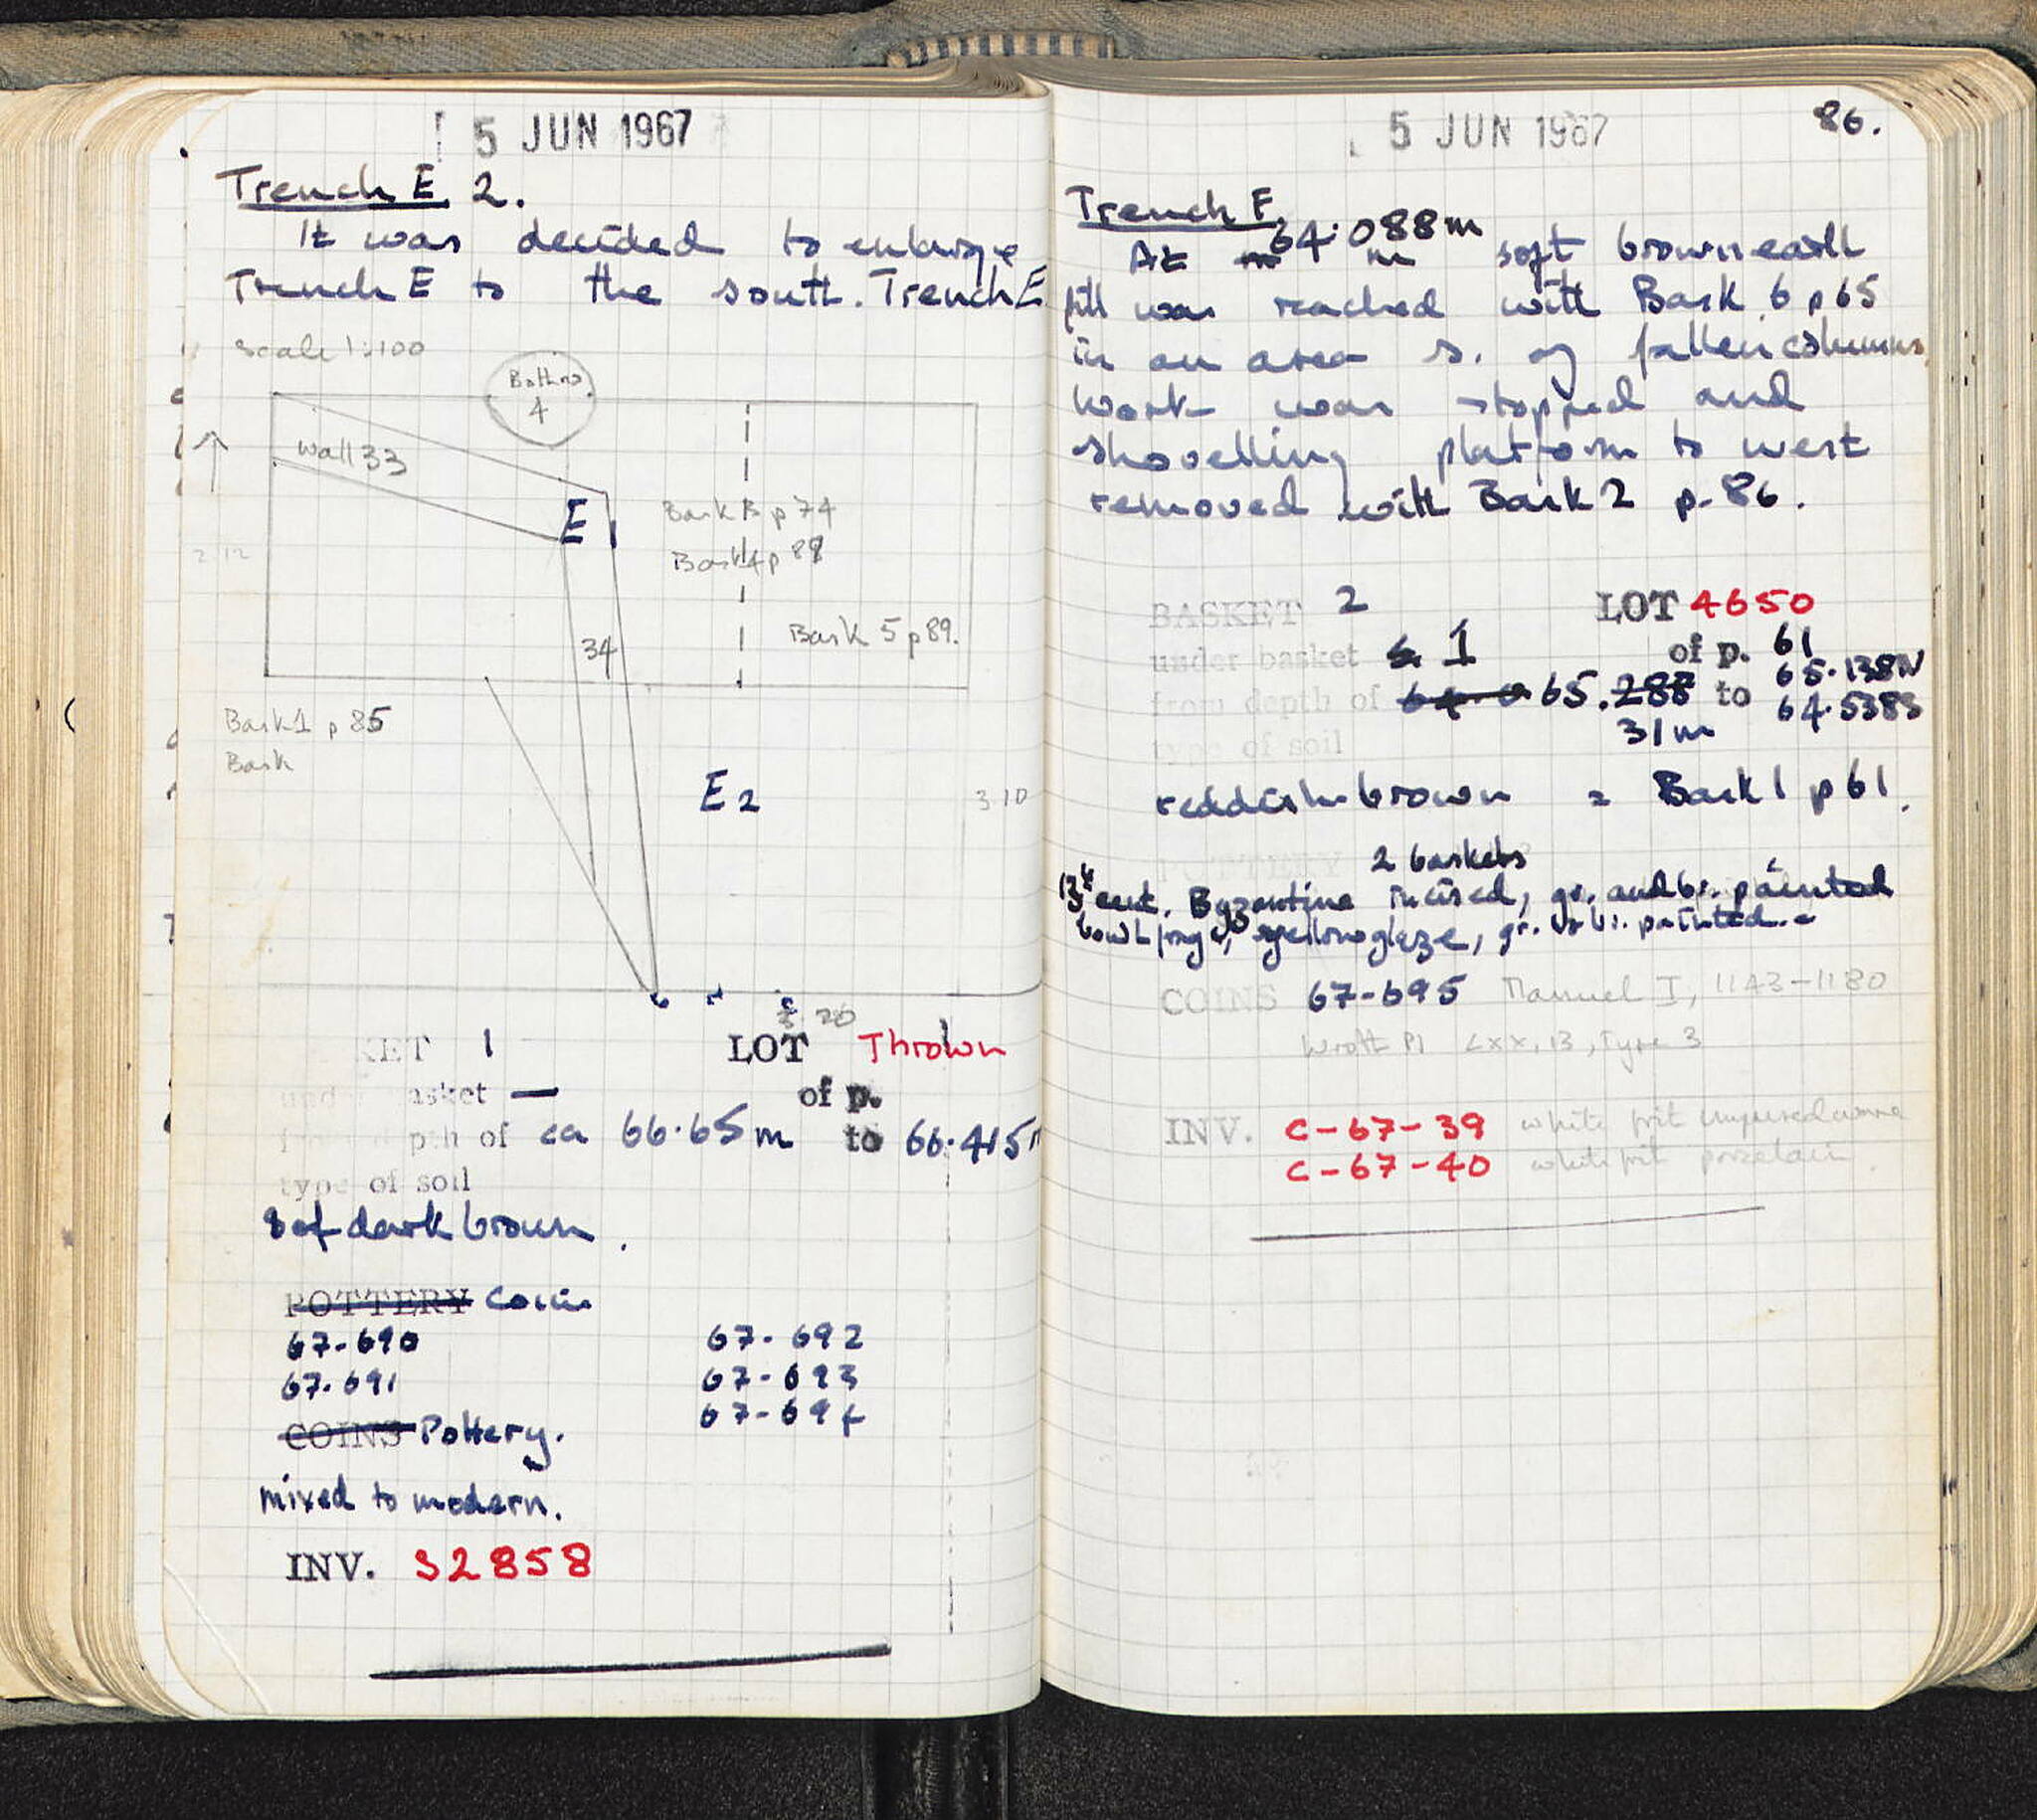 5 JUN 1967
Trench E 2.
It was decided to enlarge
Trench E to the south. Trench E
Scale 1:100
Bothros
4
Wall 33
E 1
Bask B p 74
Bask 4 p 88
2.12
34
Bask 5 p 89.
Bask 1 p 85
Bask
E 2
3.10
20
KET 1 LOT Thrown
under basket — of p.
from depth of ca 66.65 m to 66.415
type of soil
Sof dark brown.
POTTERY Coins
67-690 67-692
67-691 67-693
67-694
COINS Pottery.
mixed to modern.
INV. S2858
5 JUN 1967 86.
Trench F
At 64.088m m soft brown earth
fill was reached with Bask 6 p 65
in an area s. of fallen columns.
Work was stopped and
shovelling platform to west
removed with Bask 2 p. 86.
BASKET 2 LOT 4650
under basket 1 of p. 61
from depth of 65.288 to 65.138N
31m 64.538S
type of soil
reddish brown = Bask 1 p 61.
POTTERY 2 baskets
13th cent. Byzantine incised, gr. and br. painted
yellow glaze, gr. br. painted.
COINS 67-695 Manuel I, 1143-1180
Wroth Pl LXX, 13, Type 3
INV. C-67-39 white frit
C-67-40 white frit porcelain.